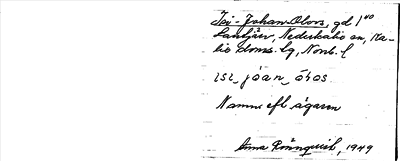 Isi-Johan-Olovs, gd 1⁴⁰
Santjärv, Nederkalix sn, Ka-
lix doms. lg, Norrb. l
isi_ jóan_ óɷos
Namn efl ägaren
Anna Rönnquist, 1949